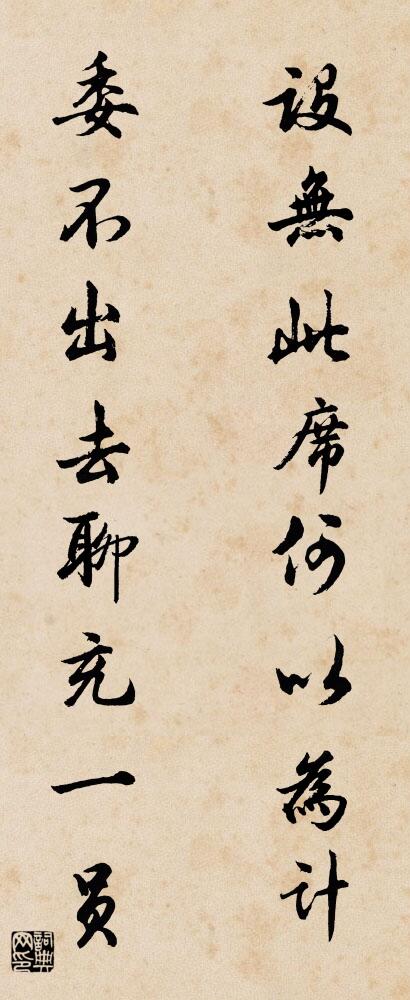 設無此席何以為計
委不出去聊充一员
詞典网印